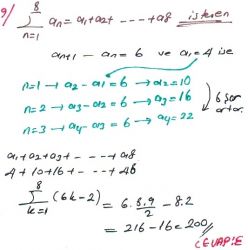 9/ 8 Σ n=1 an = a1+a2+ ---- +a8 istenen
an+1 - an = 6 ve a1 = 4 ise
n=1 → a2 - a1 = 6 → a2 = 10
n=2 → a3 - a2 = 6 → a3 = 16
n=3 → a4 - a3 = 6 → a4 = 22
6 şar artar.
a1 + a2 + a3 + - - - - - + a8
4 + 10 + 16 + - - - - + 46
8 Σ k=1 (6k-2) = 6. 8.9/2 - 8.2
= 216 - 16 = 200//
CEVAP: E